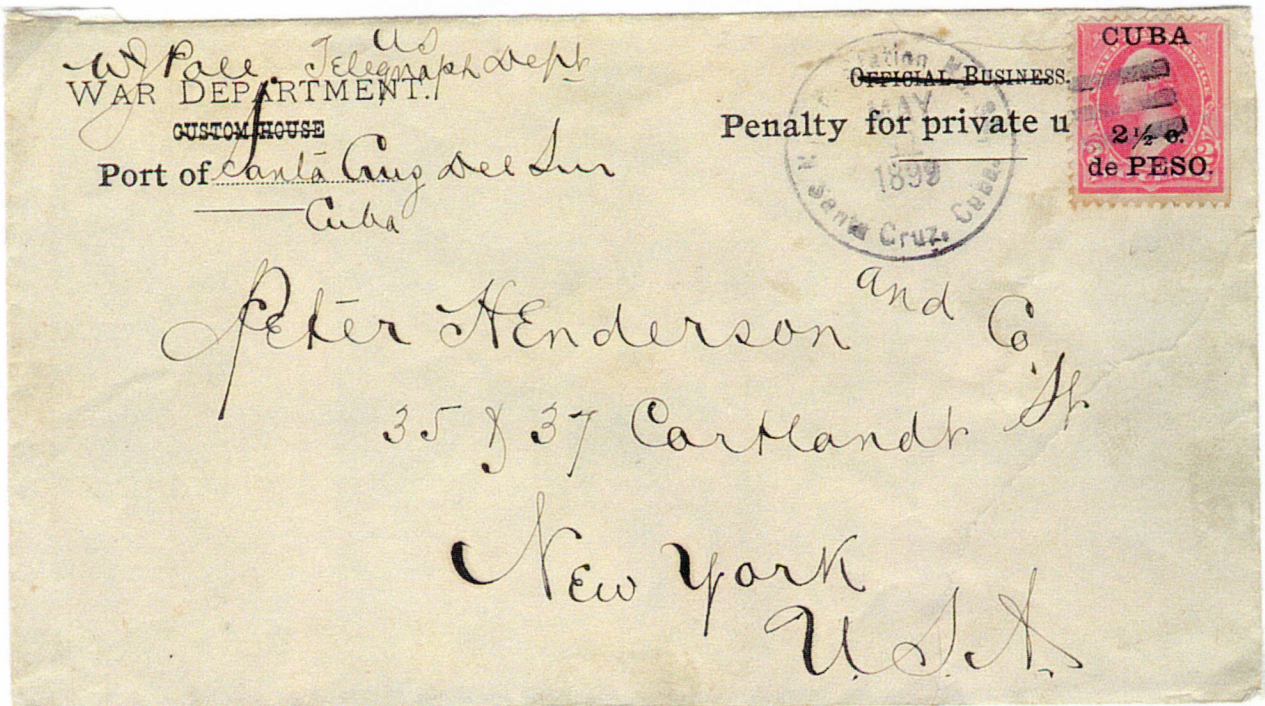 US
W J Pace, Telegraph Dept
WAR DEPARTMENT.
CUSTOM HOUSE
Port of Santa Cruz Del Sur
Cuba
OFFICIAL BUSINESS.
Penalty for private u
Station
MAY
1899
Santa Cruz, Cuba
CUBA
2½ c.
de PESO.
Peter Henderson and Co
35 & 37 Cortlandt St
New York
U.S.A.